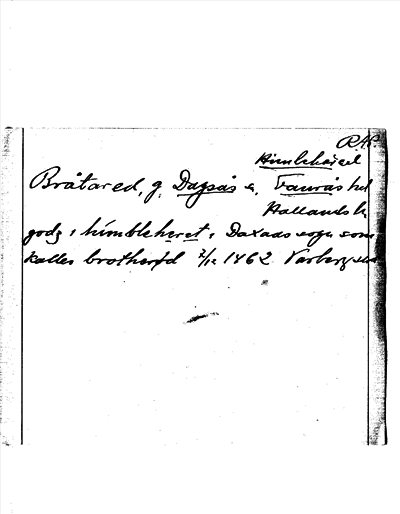 R.A.P.
Himlehärad
Bråtared, g. Dagsås s., Faurås hd
Hallands l.
godz i himbleheret i Daxaas sogn som
kalles brotherød 2/12 1462 Varbergs